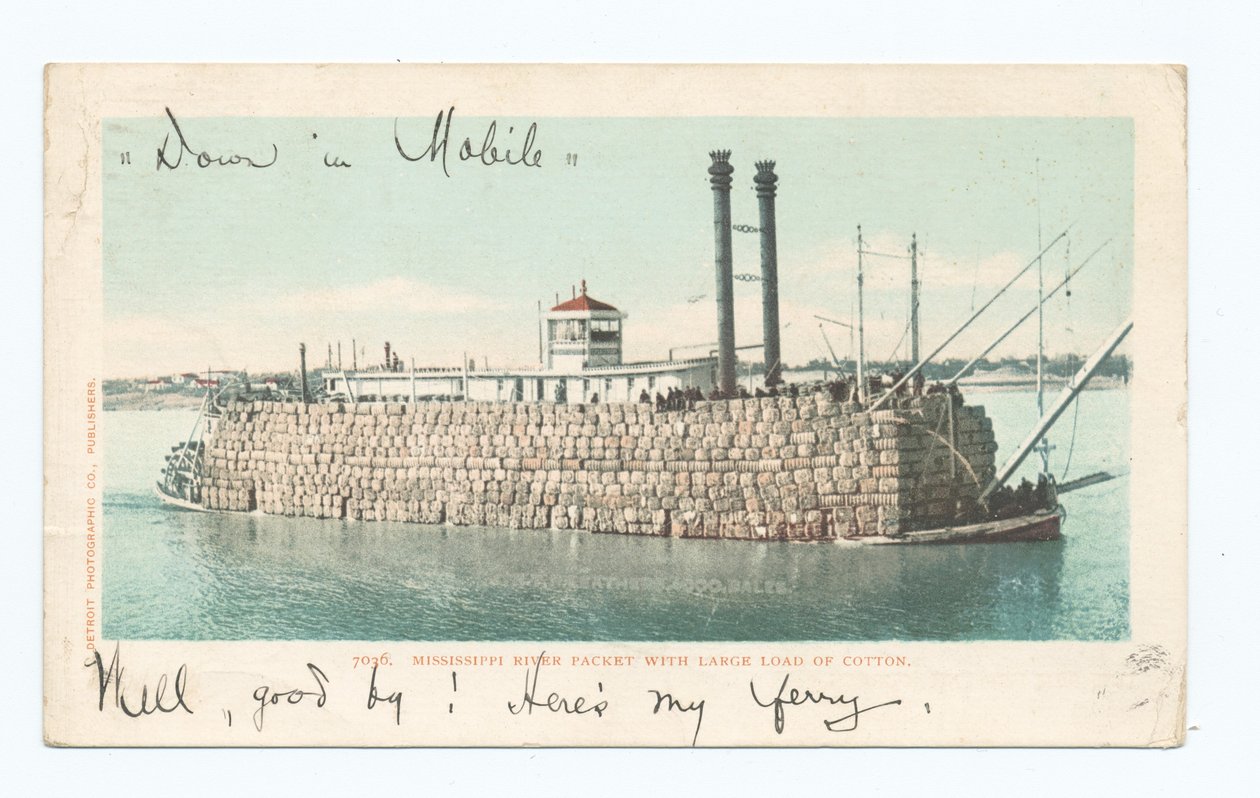 " Down in Mobile "
DETROIT PHOTOGRAPHIC CO., PUBLISHERS.
7036. MISSISSIPPI RIVER PACKET WITH LARGE LOAD OF COTTON.
Well, good by! Here's my ferry.